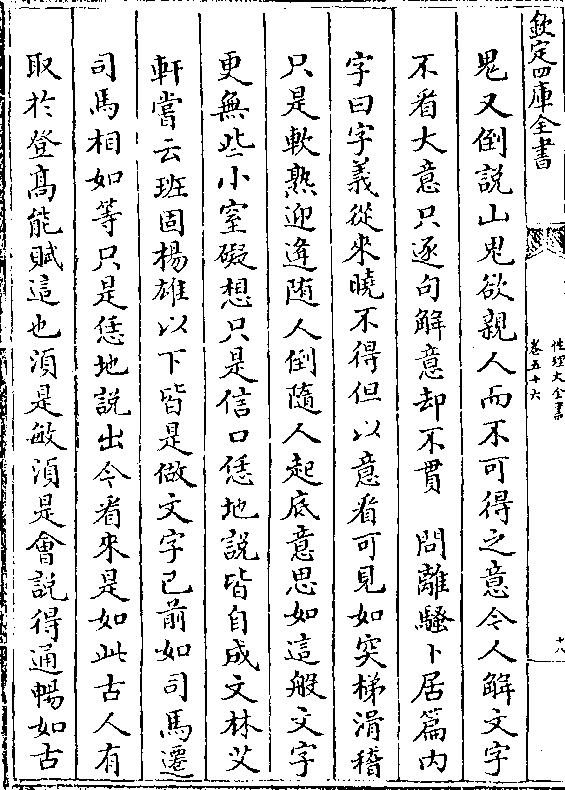 欽定四庫全書
性理大全書
卷五十六
十八
鬼又倒說山鬼欲親人而不可得之意今人解文字
不看大意只逐句解意却不貫　問離騷卜居篇内
字曰字義從來曉不得但以意看可見如突梯滑稽
只是軟熟迎逢随人倒隨人起底意思如這般文字
更無些小窒礙想只是信口恁地說皆自成文林艾
軒嘗云班固楊雄以下皆是做文字已前如司馬遷
司馬相如等只是恁地說出今看來是如此古人有
取於登髙能賦這也須是敏須是會說得通暢如古